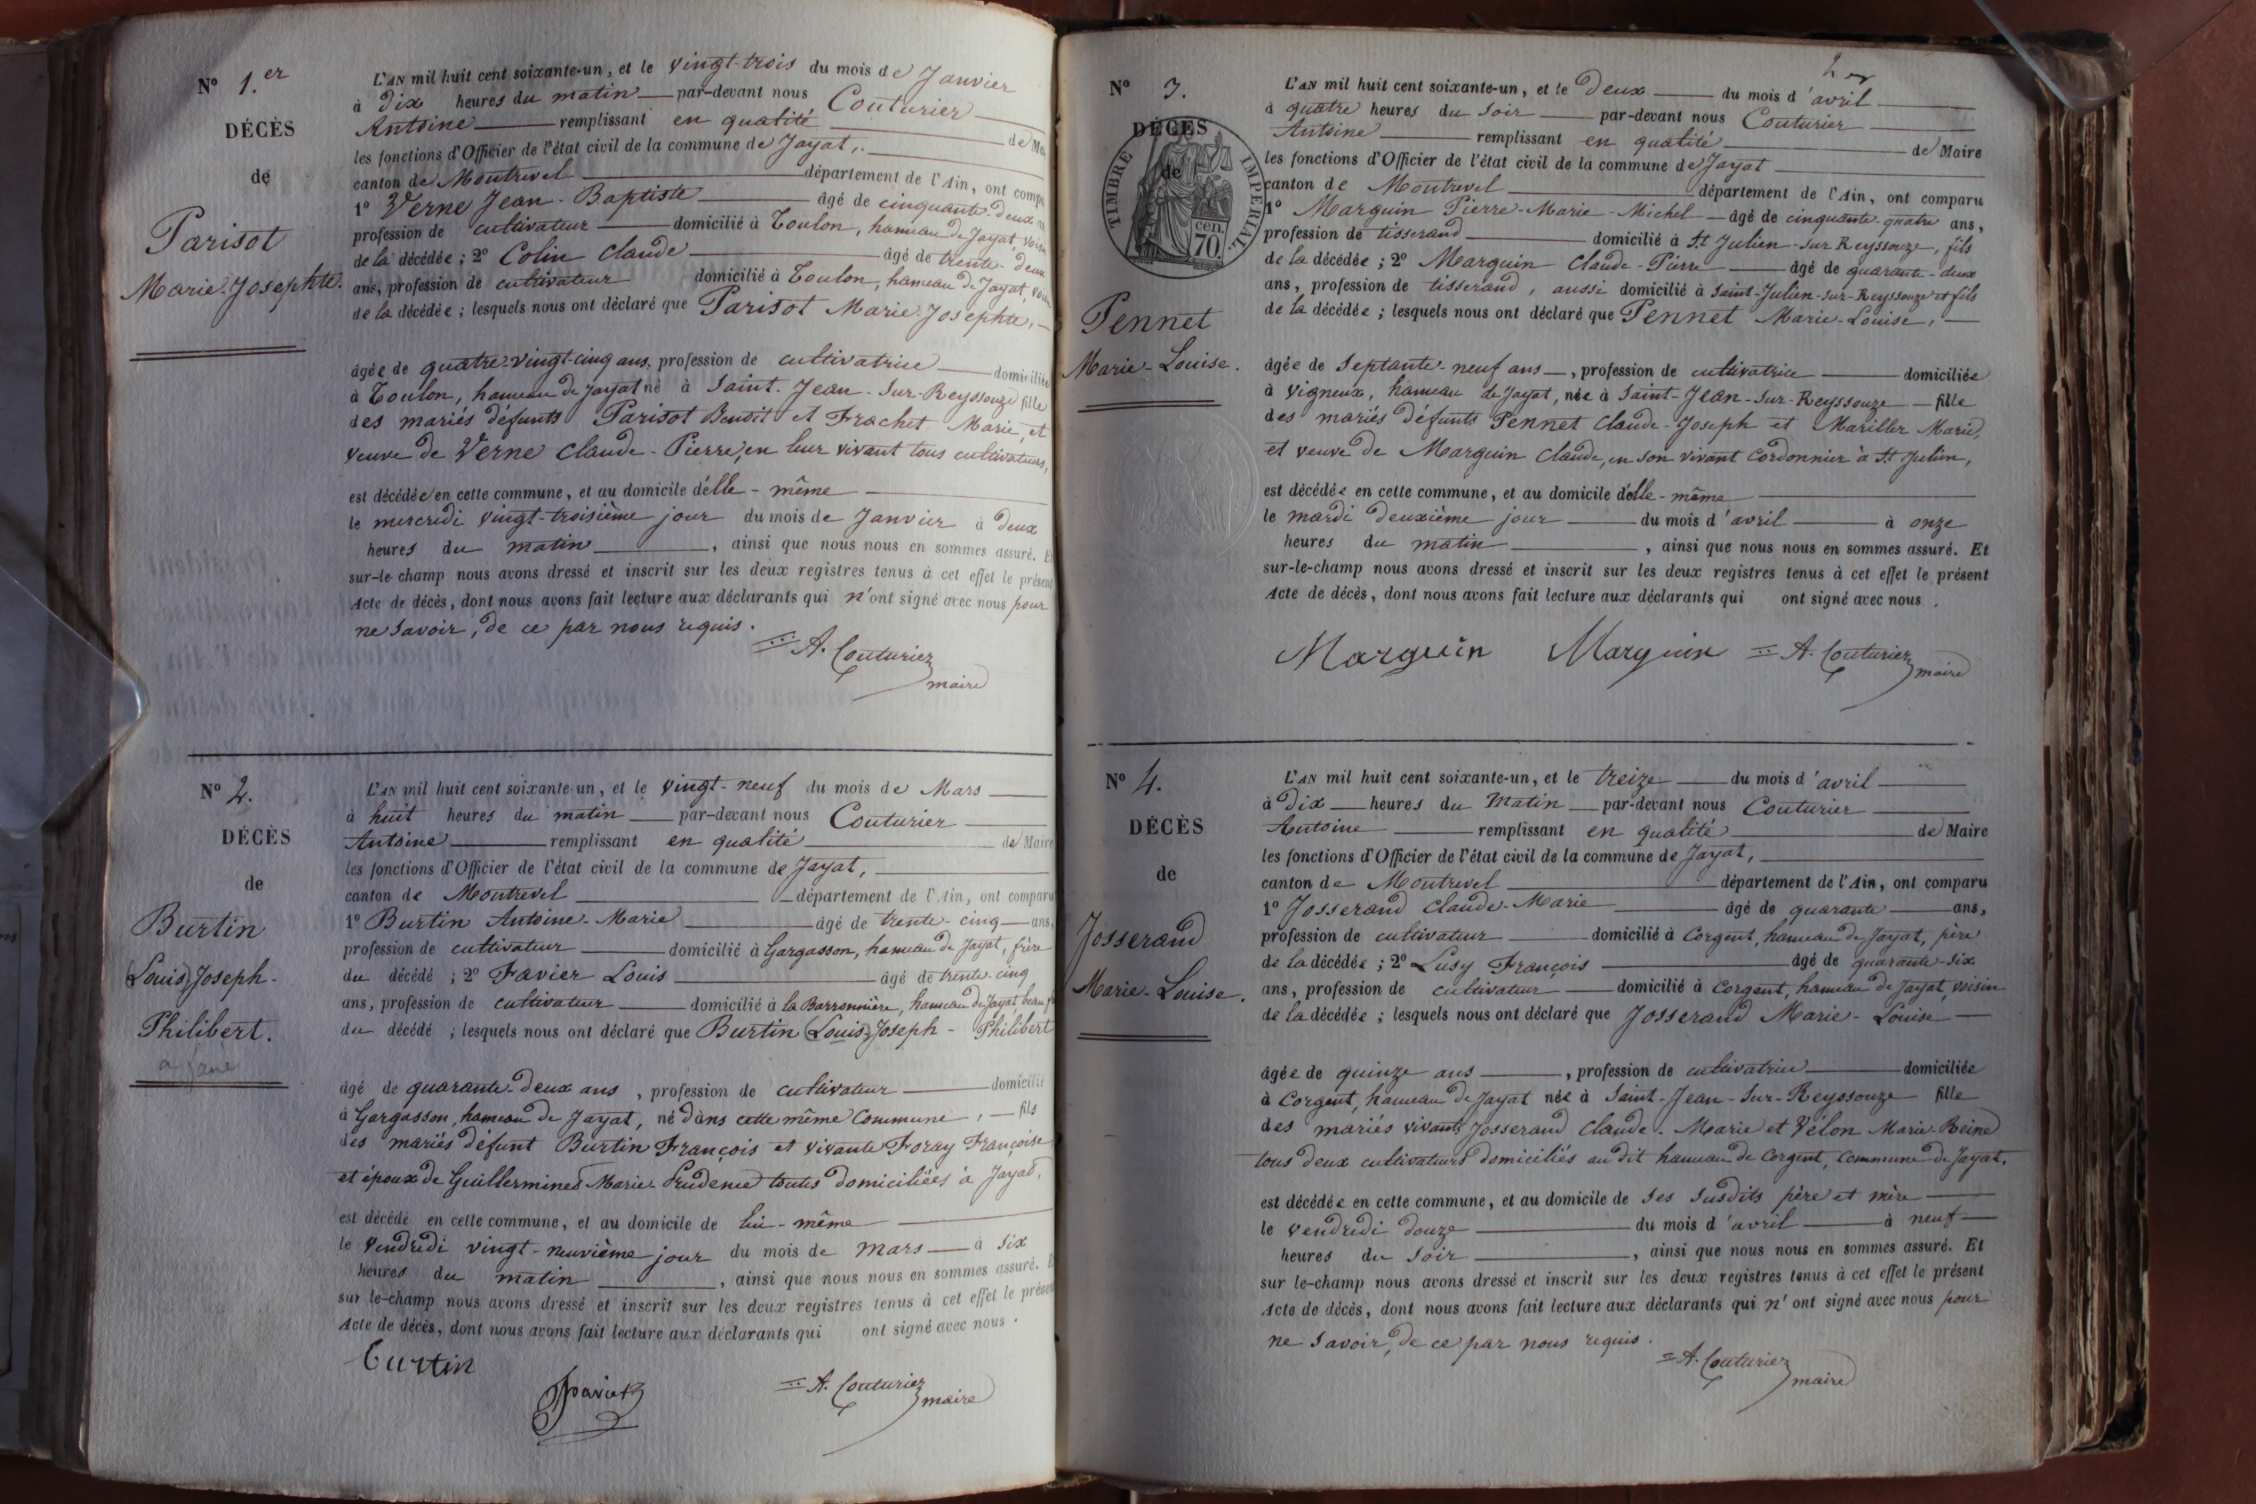 N° 1.er
DÉCÈS
de
Parisot
Marie-Josephte.
L'AN mil huit cent soixante-un, et le vingt-trois du mois de Janvier
à dix heures du matin par-devant nous Couturier
Antoine remplissant en qualité de Ma
les fonctions d'Officier de l'état civil de la commune de Jayat,
canton de Montrevel département de l'Ain, ont compa
1° Verne Jean-Baptiste âgé de cinquante-deux
profession de cultivateur domicilié à Toulon, hameau de Jayat, voisin
de la décédée ; 2° Colin Claude âgé de trente-deux
ans, profession de cultivateur domicilié à Toulon, hameau de Jayat, voisin
de la décédée ; lesquels nous ont déclaré que Parisot Marie-Josephte,
âgée de quatre-vingt-cinq ans, profession de cultivatrice domiciliée
à Toulon, hameau de Jayat né à Saint-Jean-sur-Reyssouze fille
des mariés défunts Parisot Benoit et Frachet Marie, et
veuve de Verne Claude-Pierre, en leur vivant tous cultivateurs,
est décédée en cette commune, et au domicile d'elle-même
le mercredi vingt-troisième jour du mois de Janvier à deux
heures du matin, ainsi que nous nous en sommes assuré. Et
sur-le-champ nous avons dressé et inscrit sur les deux registres tenus à cet effet le présent
Acte de décès, dont nous avons fait lecture aux déclarants qui n'ont signé avec nous pour
ne savoir, de ce par nous requis.
A. Couturier
maire
N° 2.
DÉCÈS
de
Burtin
(Louis) Joseph-
Philibert.
L'AN mil huit cent soixante-un, et le vingt-neuf du mois de Mars
à huit heures du matin par-devant nous Couturier
Antoine remplissant en qualité de Maire
les fonctions d'Officier de l'état civil de la commune de Jayat,
canton de Montrevel département de l'Ain, ont comparu
1° Burtin Antoine-Marie âgé de trente-cinq ans,
profession de cultivateur domicilié à Gargasson, hameau de Jayat, frère
du décédé ; 2° Favier Louis âgé de trente-cinq
ans, profession de cultivateur domicilié à la Barronnière, hameau de Jayat, beau
du décédé ; lesquels nous ont déclaré que Burtin (Louis) Joseph-Philibert
âgé de quarante-deux ans, profession de cultivateur domicilié
à Gargasson, hameau de Jayat, né dans cette même commune, fils
des mariés défunt Burtin François et vivante Foray Françoise
et époux de Guillerminet Marie-Prudence toutes domiciliées à Jayat,
est décédé en cette commune, et au domicile de lui-même
le vendredi vingt-neuvième jour du mois de mars à six
heures du matin, ainsi que nous nous en sommes assuré. E
sur le-champ nous avons dressé et inscrit sur les deux registres tenus à cet effet le présent
Acte de décès, dont nous avons fait lecture aux déclarants qui ont signé avec nous.
Burtin
Favier
A. Couturier
maire
2
N° 3.
DÉCÈS
de
TIMBRE IMPÉRIAL.
cen.
70.
Pennet
Marie-Louise.
L'AN mil huit cent soixante-un, et le deux du mois d'avril
à quatre heures du soir par-devant nous Couturier
Antoine remplissant en qualité de Maire
les fonctions d'Officier de l'état civil de la commune de Jayat
canton de Montrevel département de l'Ain, ont comparu
1° Marguin Pierre-Marie-Michel âgé de cinquante-quatre ans,
profession de tisserand domicilié à St Julien-sur-Reyssouze, fils
de la décédée ; 2° Marguin Claude-Pierre âgé de quarante-deux
ans, profession de tisserand, aussi domicilié à Saint-Julien-sur-Reyssouze et fils
de la décédée ; lesquels nous ont déclaré que Pennet Marie-Louise,
âgée de septante-neuf ans, profession de cultivatrice domiciliée
à Vigneux, hameau de Jayat, née à Saint-Jean-sur-Reyssouze fille
des mariés défunts Pennet Claude-Joseph et Mariller Marie,
et veuve de Marguin Claude, en son vivant cordonnier à St Julien,
est décédée en cette commune, et au domicile d'elle-même
le mardi deuxième jour du mois d'avril à onze
heures du matin, ainsi que nous nous en sommes assuré. Et
sur-le-champ nous avons dressé et inscrit sur les deux registres tenus à cet effet le présent
Acte de décès, dont nous avons fait lecture aux déclarants qui ont signé avec nous.
Marguin Marguin A. Couturier
maire
N° 4.
DÉCÈS
de
Josserand
Marie-Louise.
L'AN mil huit cent soixante-un, et le treize du mois d'avril
à dix heures du matin par-devant nous Couturier
Antoine remplissant en qualité de Maire
les fonctions d'Officier de l'état civil de la commune de Jayat,
canton de Montrevel département de l'Ain, ont comparu
1° Josserand Claude-Marie âgé de quarante ans,
profession de cultivateur domicilié à Corgent, hameau de Jayat, père
de la décédée ; 2° Lusy François âgé de quarante-six
ans, profession de cultivateur domicilié à Corgent, hameau de Jayat, voisin
de la décédée ; lesquels nous ont déclaré que Josserand Marie-Louise
âgée de quinze ans, profession de cultivatrice domiciliée
à Corgent, hameau de Jayat née à Saint-Jean-sur-Reyssouze fille
des mariés vivants Josserand Claude-Marie et Vélon Marie-Reine
tous deux cultivateurs domiciliés au dit hameau de Corgent, commune de Jayat.
est décédée en cette commune, et au domicile de ses susdits père et mère
le vendredi douze du mois d'avril à neuf
heures du soir, ainsi que nous nous en sommes assuré. Et
sur le-champ nous avons dressé et inscrit sur les deux registres tenus à cet effet le présent
Acte de décès, dont nous avons fait lecture aux déclarants qui n'ont signé avec nous pour
ne savoir, de ce par nous requis.
A. Couturier
maire